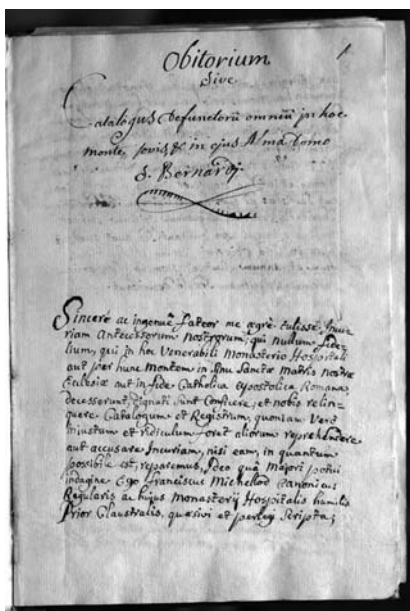 1
Obitorium
Sive
Catalogus Defunctorū omniū jn hoc
monte jovis, & in ejus Alma Domo
S. Bernardj.
Sincerè ac ingenuè fateor me ægrè tulisse, Incu-
riam Antecessorum nostrorum; qui nullum fide-
lium, qui in hoc Venerabili Monasterio Hospitali
aut per hunc Montem in sinu Sanctæ Matris nostræ
Ecclesiæ aut in fide Catholica Apostolica Romana,
decesserunt, dignati sunt Conficere, et nobis relin-
quere Catalogum et Registrum, quoniam Verò
injustum et ridiculum foret aliorum reprehendere
aut accusare Incuriam, nisi eam, in quantum
possibile est, reparemus, Ideo quâ Majori potui
indagine Ego Franciscus Michellod Canonicus
Regularis ac hujus Monasterij Hospitalis humilis
Prior Claustralis, quæsivi et perlegi Scripta,